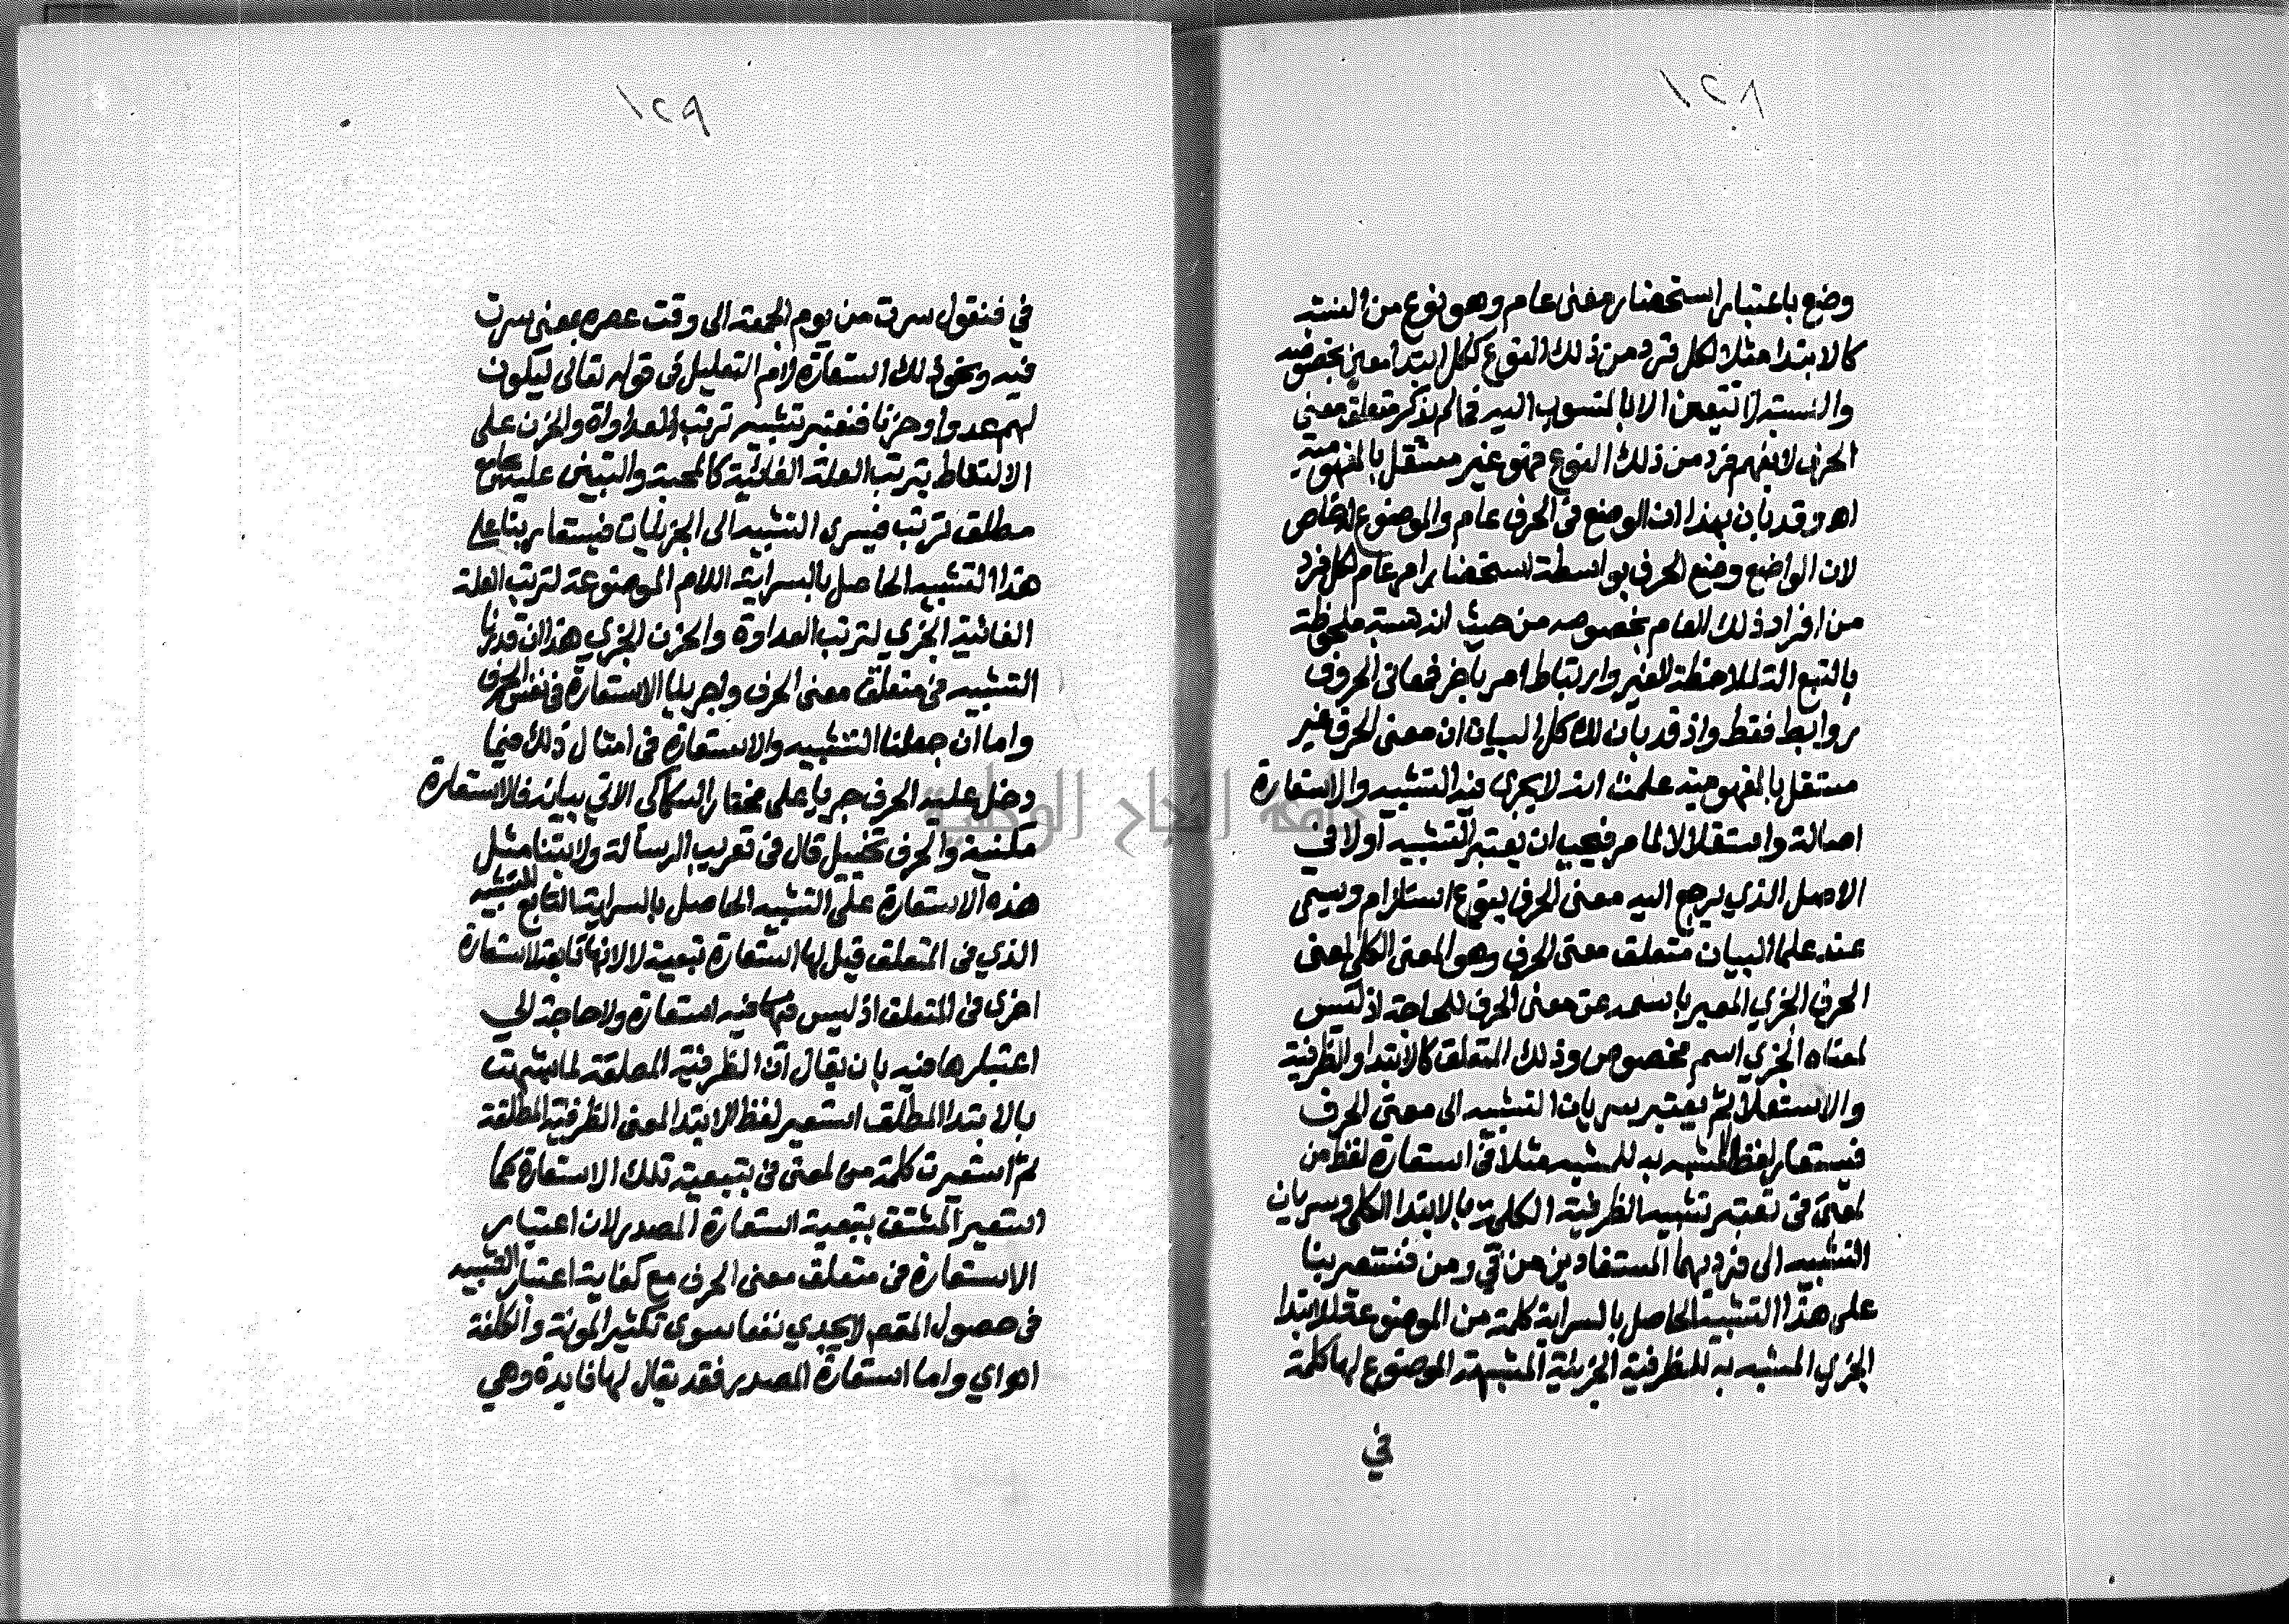 ١٢٨
وضع باعتبار استحضار معنى عام وهو نوع من النسبة
كالابتدا مثلا لكل فرد من ذلك النوع ككل ابتدا معين بخصوصه
والنسبة لا تتعين الا بالمنسوب اليه فما لم يذكر متعلق معنى
الحرف لا يفهم فرد من ذلك النوع فهو غير مستقل بالمفهومية
اه وقد بان بهذا ان الوضع في الحرف عام والموضوع له خاص
لان الواضع وضع الحرف بواسطة استحضار امر عام لكل فرد
من افراد ذلك العام بخصوصه من حيث انه نسبة ملحوظة
بالتبع الة لملاحظة الغير وارتباط امر باخر فمعاني الحروف
روابط فقط واذ قد بان لك كل البيان ان معنى الحرف غير
مستقل بالمفهومية علمت انه لا يجري فيه التشبيه والاستعارة
اصالة واستقلالا لما مر فيجب ان يعتبر التشبيه اولا في
الاصل الذي يرجع اليه معنى الحرف بنوع استلزام ويسمى
عند علما البيان متعلق معنى الحرف وهو المعنى الكلي لمعنى
الحرف الجزي المعبر باسمه عن معنى الحرف للحاجة اذ ليس
لمعناه الجزي اسم مخصوص وذلك المتعلق كالابتدا والظرفية
والاستعلا ثم يعتبر سريان التشبيه الى معنى الحرف
فيستعار لفظ المشبه به للمشبه مثلا في استعارة لفظ من
لمعنى في تعتبر تشبيه الظرفية الكلية بالابتدا الكلي وسريان
التشبيه الى فرديهما المستفادين من في ومن فتستعير بنا
على هذا التشبيه الحاصل بالسراية كلمة من الموضوعة للابتدا
الجزي المشبه به للظرفية الجزئية المشبهة الموضوع لها كلمة
في
١٢٩
في فتقول سرت من يوم الجمعة الى وقت عصره بمعنى سرت
فيه ونحو ذلك استعارة لام التعليل في قوله تعالى ليكون
لهم عدوا وحزنا فتعتبر تشبيه ترتب العداوة والحزن على
الالتقاط بترتب العلة الغائية كالمحبة والتبني عليه بجامع
مطلق ترتب فيسري التشبيه الى الجزئيات فيستعار بنا على
هذا التشبيه الحاصل بالسراية اللام الموضوعة لترتب العلة
الغائية الجزي لترتب العداوة والحزن الجزي هذا ان قدرنا
التشبيه في متعلق معنى الحرف واجرينا الاستعارة في نفس الحرف
واما ان جعلنا التشبيه والاستعارة في امثال ذلك فيما
دخل عليه الحرف جريا على مختار السكاكي الاتي بيانه فالاستعارة
مكنية والحرف تخييل قال في تعريب الرسالة ولابتنا مثل
هذه الاستعارة على التشبيه الحاصل بالسراية التابع للتشبيه
الذي في المتعلق قيل لها استعارة تبعية لا لانها تابعة لاستعارة
اخرى في المتعلق اذ ليس فيه استعارة ولا حاجة الى
اعتبارها فيه بان يقال ان الظرفية المطلقة لما شبهت
بالابتدا المطلق استعير لفظ الابتدا لمعنى الظرفية المطلقة
ثم استعيرت كلمة من لمعنى في بتبعية تلك الاستعارة كما
استعير المشتق بتبعية استعارة المصدر لان اعتبار
الاستعارة في متعلق معنى الحرف مع كفاية اعتبار التشبيه
في حصول المقصد لا يجدي نفعا سوى تكثير المونة والكلفة
اه واي واما استعارة المصدر فقد يقال لها فايدة وهي
جامعة النجاح الوطنية